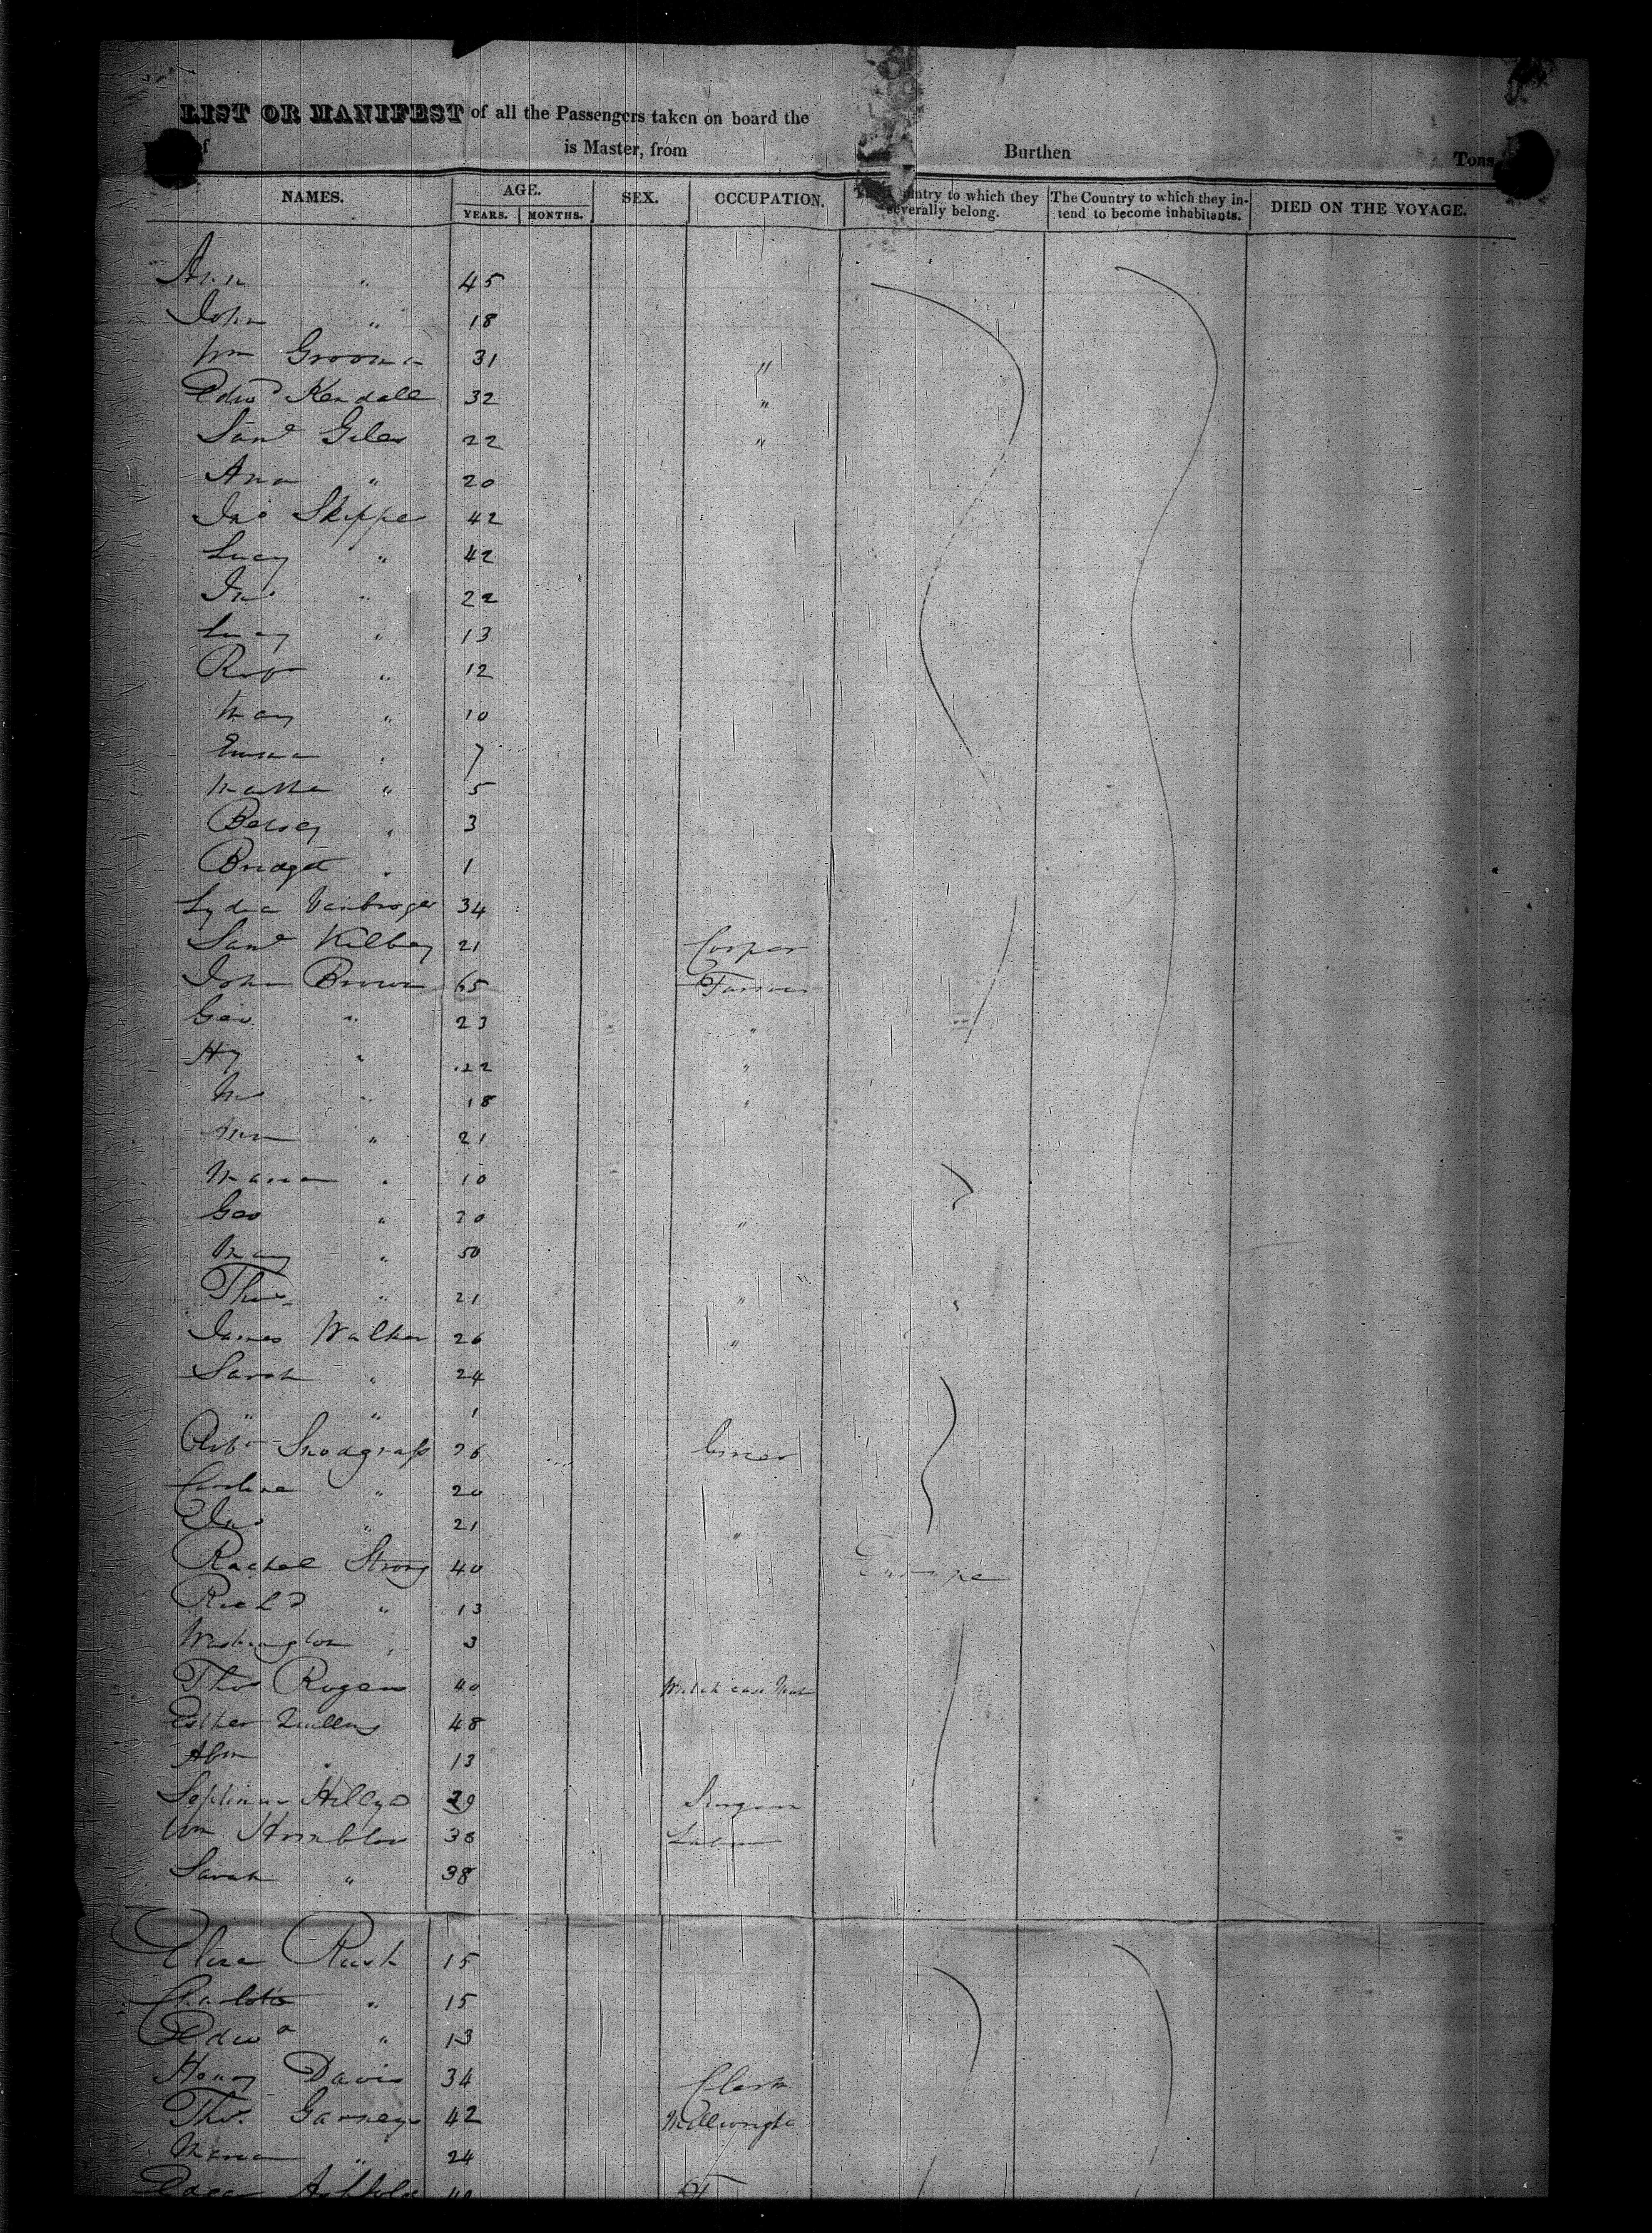 LIST OR MANIFEST of all the Passengers taken on board the
of is Master, from Burthen Tons
NAMES. AGE. SEX. OCCUPATION. The Country to which they severally belong. The Country to which they intend to become inhabitants. DIED ON THE VOYAGE.
YEARS. MONTHS.
Ann " 45
John " 18
Wm Grooma 31 "
Edwd Kendall 32 "
Saml Giles 22 "
Ann " 20
Jno Skipper 42
Lucy " 42
Jno " 22
Lucy " 13
Robt " 12
Mary " 10
Emma " 7
Martha " 5
Betsey " 3
Bridget " 1
Lydia 34
Saml Kilbey 21 Cooper
John Brown 65 Farmer
Geo " 23 "
Hy " 22 "
" 18 "
Ann " 21
Maria " 10
Geo " 20 "
Mary " 50
Thos " 21 "
James Walker 26 "
Sarah " 24
" " 1
Robt Snodgrass 26 Grocer
Caroline " 20
" 21 "
Rachel Strong 40 Europe
Richd " 13
Washington " 3
Thos Rogers 40 Watch case Mak
Esther Mullens 48
Abm " 13
Septimus Hillyd 29 Surgeon
Wm Hornblow 38 Labour
Sarah " 38
Eliza Rush 15
Charlotte " 15
Edwd " 13
Henry Davis 34 Clerk
Thos. Garney 42 Millwright
Maria " 24